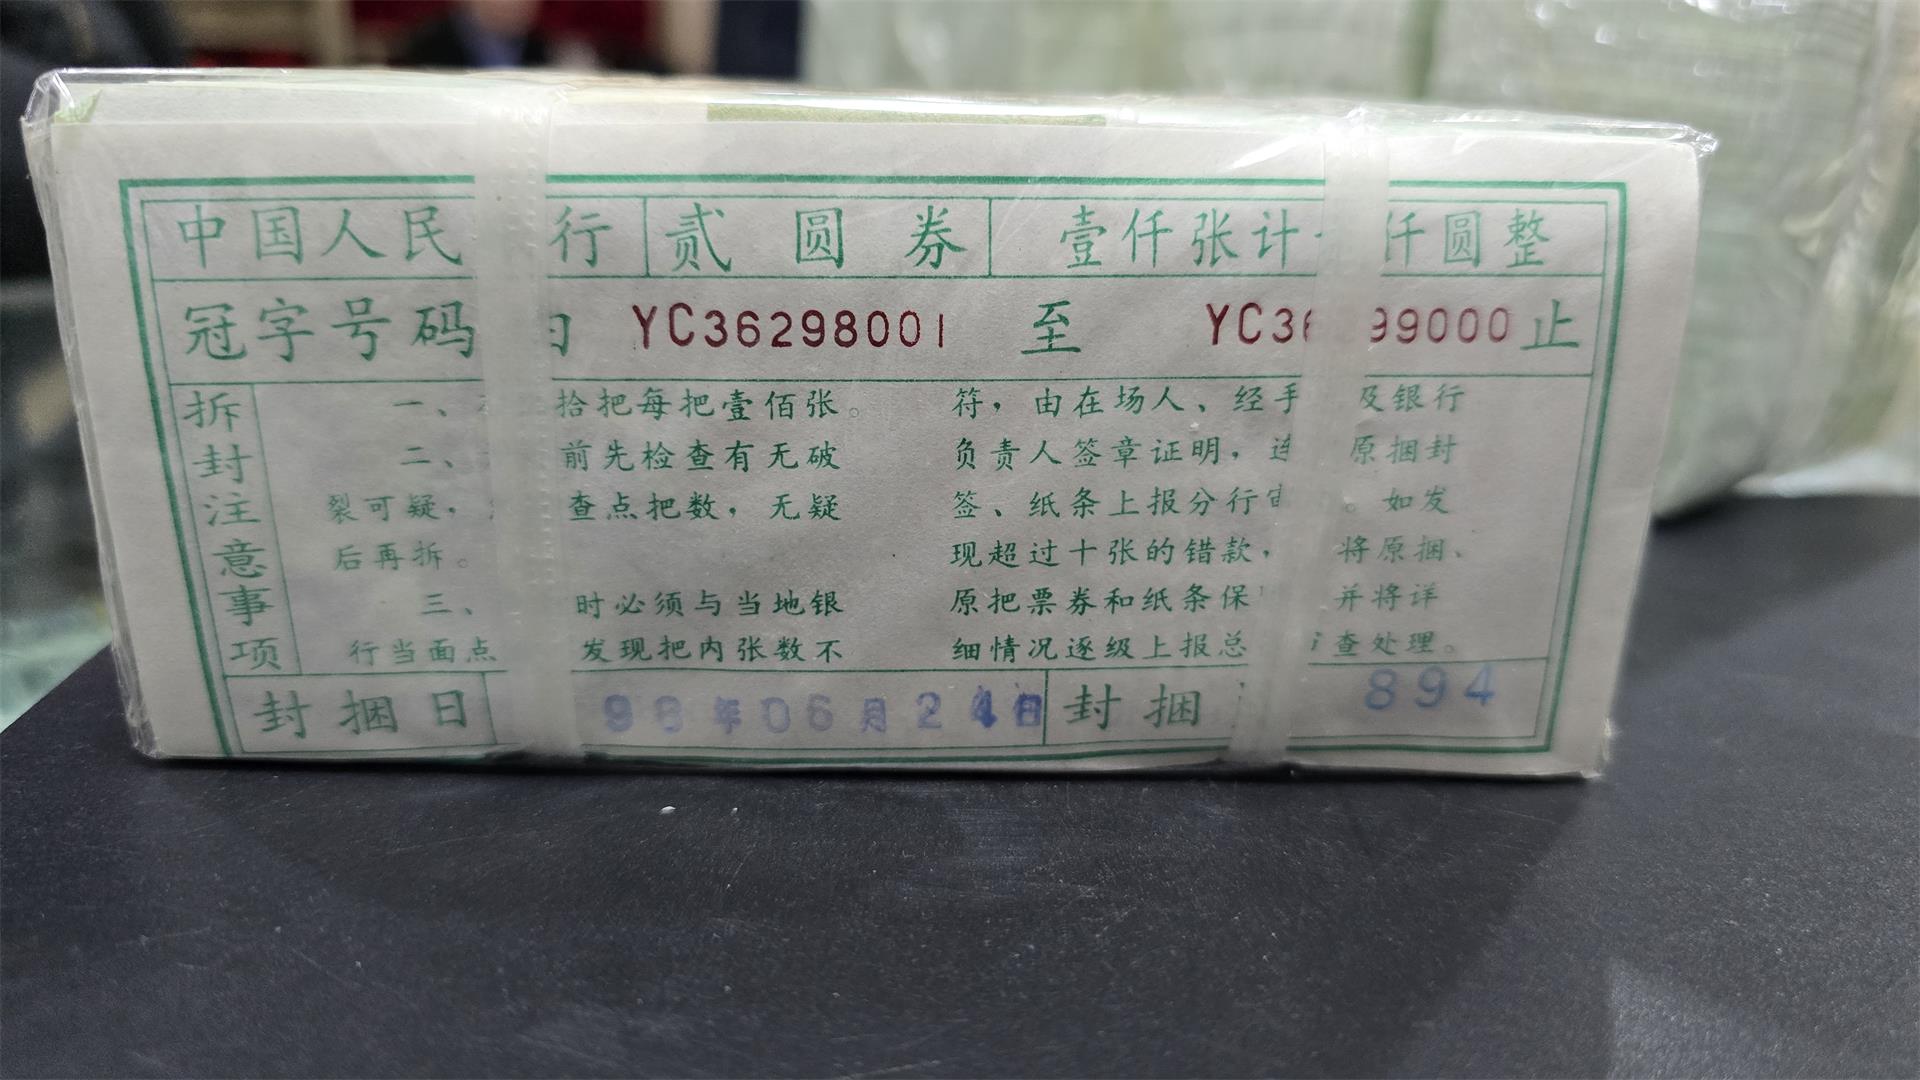 中国人民 行 贰圆券 壹仟张计 仟圆整
冠字号码 YC36298001 至 YC36 99000 止
拆封注意事项
一、 拾把每把壹佰张。
二、 前先检查有无破
裂可疑, 查点把数,无疑
后再拆。
三、 时必须与当地银
行当面点 发现把内张数不
符,由在场人、经手 及银行
负责人签章证明, 原捆封
签、纸条上报分行 。如发
现超过十张的错款, 将原捆、
原把票券和纸条保 并将详
细情况逐级上报总 查处理。
封捆日 98年06月24日 封捆 894